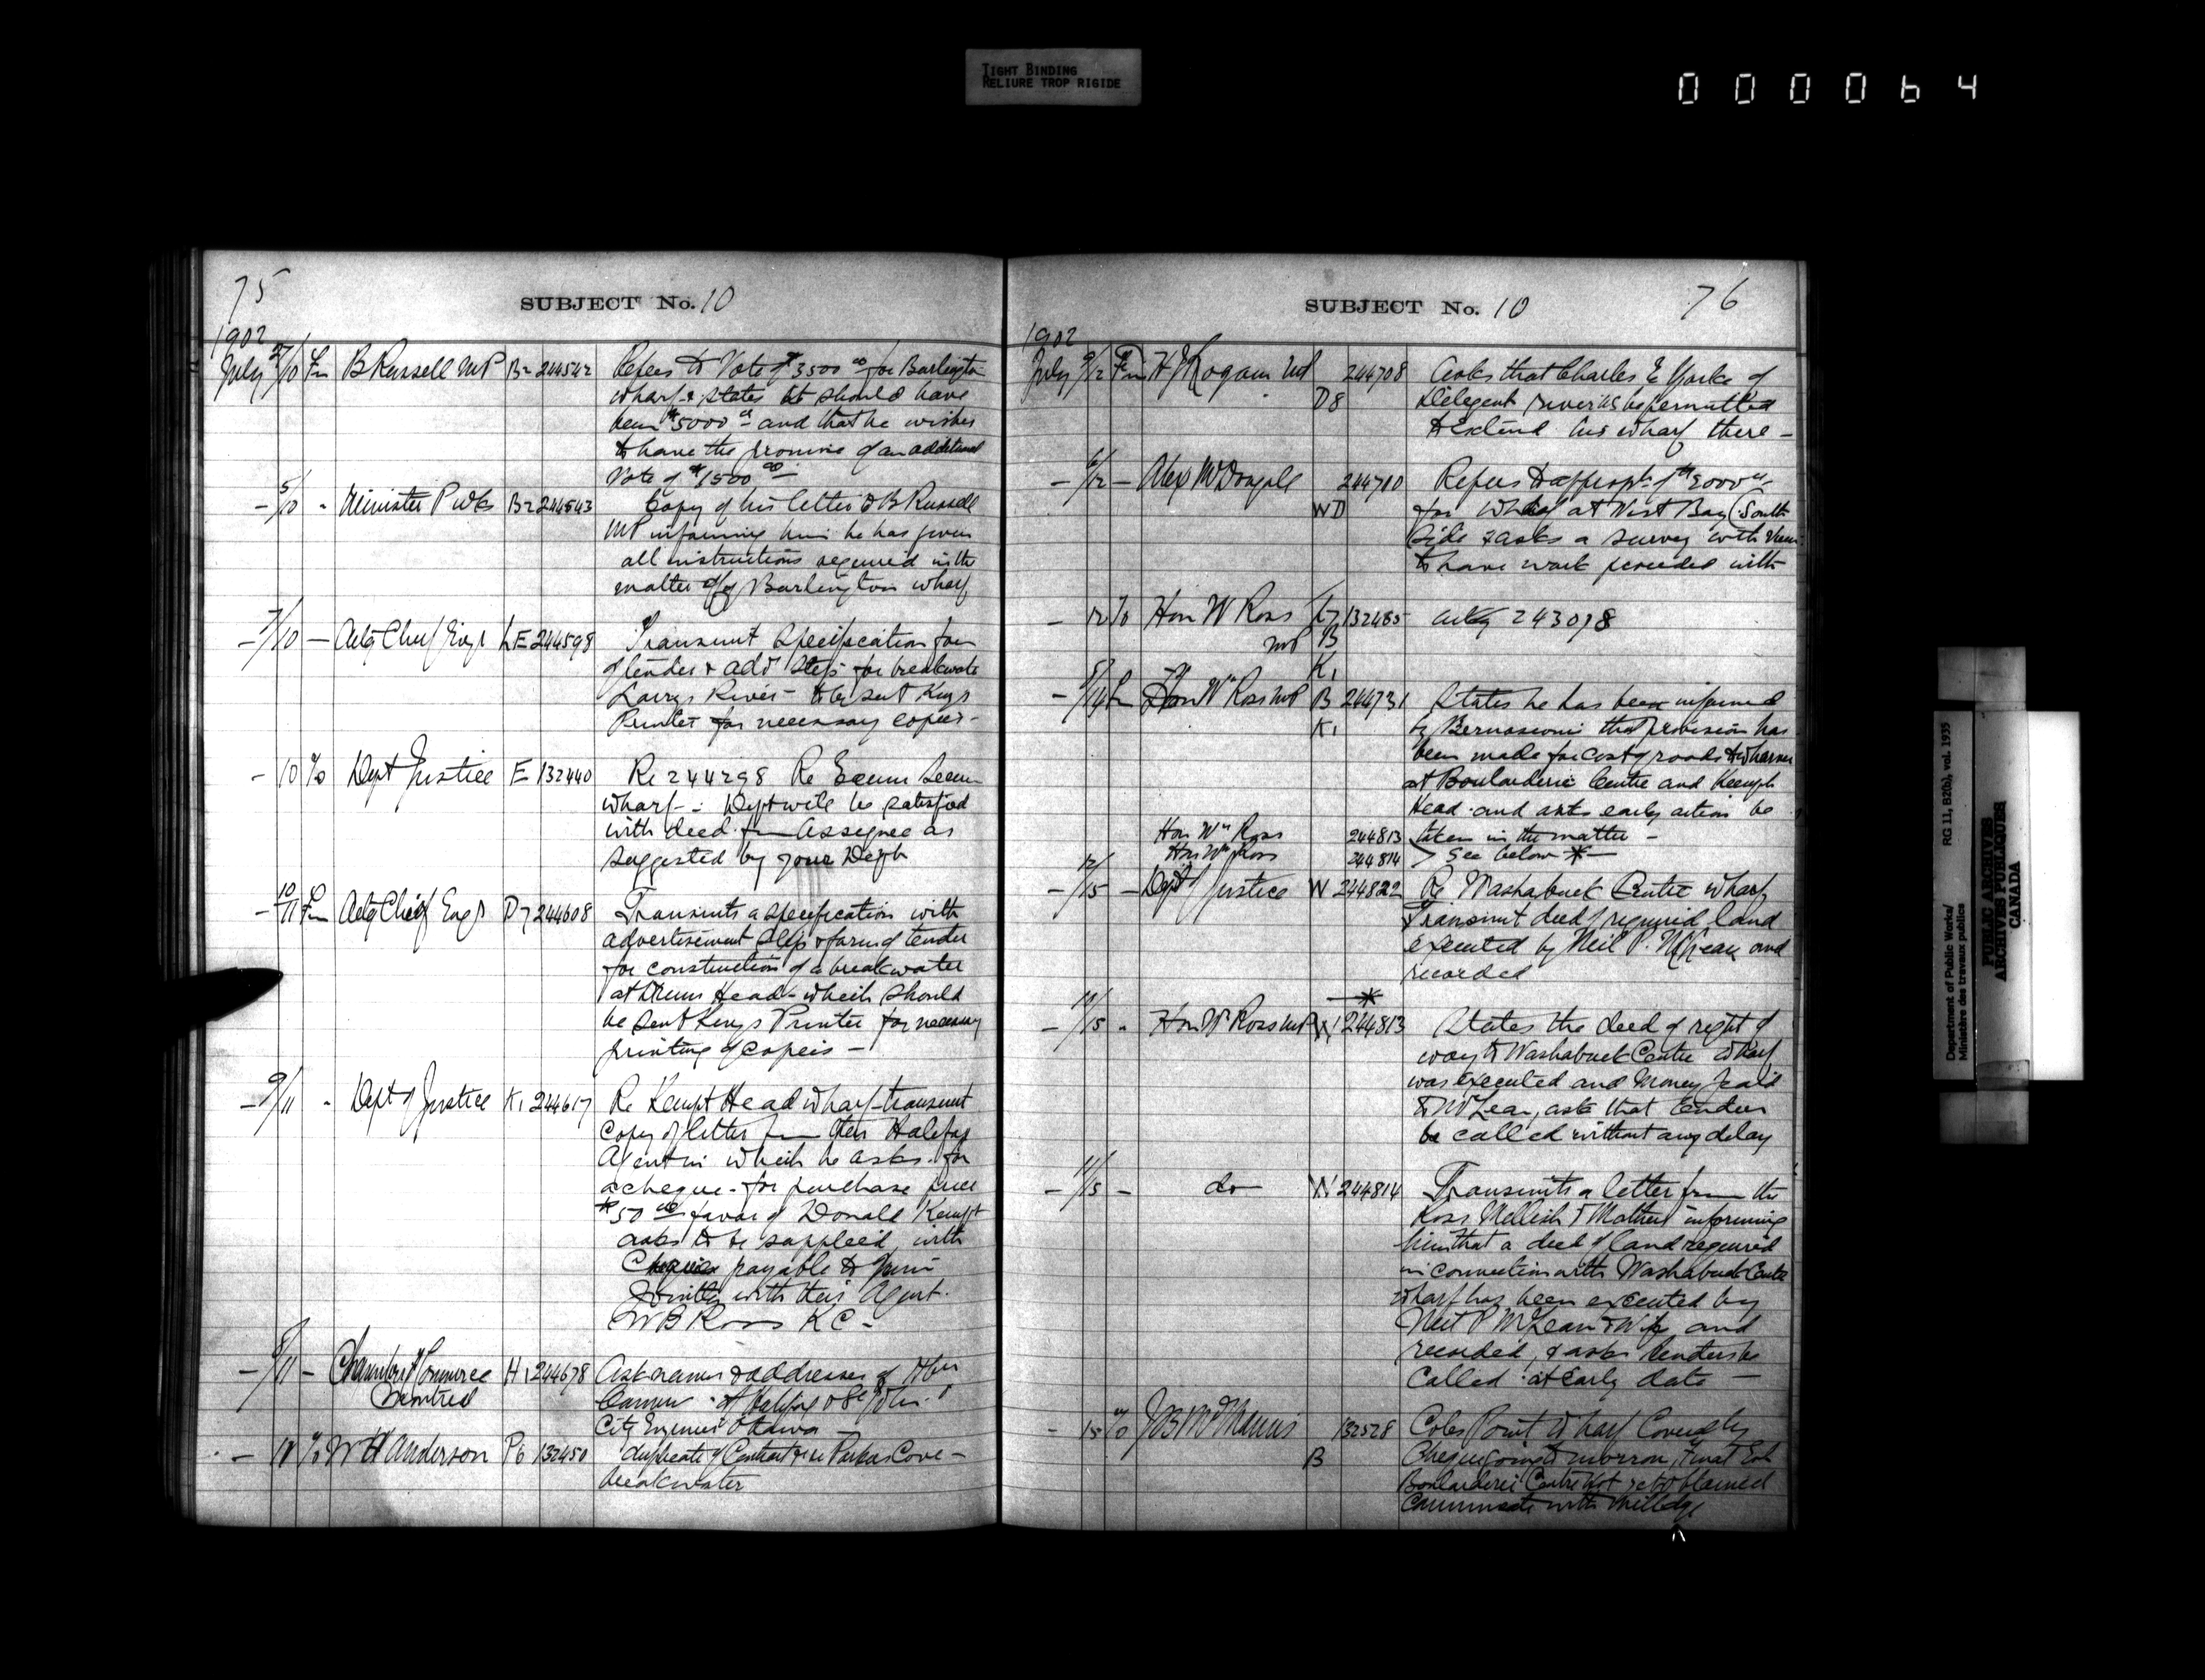 TIGHT BINDING
RELIURE TROP RIGIDE
000064
75
SUBJECT No. 10
1902
July 5/10 Fm B Russell MP B2 244542 Refers to Vote of $3500 00 for Burlington
wharf & states it should have
been $5000 and that he wishes
to have the promise of an additional
Vote of $1500 00
- 5/10 " Minister P Wks B2 244543 Copy of his letter to B Russell
MP informing him he has given
all instructions required in the
matter of Burlington wharf
- 7/10 - Actg Chief Engr LE 244598 Transmit Specification form
of tender & adv slips for breakwater
Larrys River - to be sent Kings
Printer for necessary copies -
- 10 To Dept Justice E 132440 Re 244298 Re Ecum Secum
wharf - : Dept will be satisfied
with deed from Assignee as
suggested by your Dept
- 10/11 Fm Actg Chief Engr D7 244608 Transmits a specification with
advertisement slips & form of tender
for construction of a breakwater
at Drum Head - which should
be sent Kings Printer for necessary
printing of copies -
- 9/11 " Dept of Justice K1 244617 Re Kempt Head wharf - transmit
Copy of letter from their Halifax
Agent in which he asks for
a cheque - for purchase price
$50 00 favor of Donald Kempt
asks to be supplied with
Cheque payable to him
Jointly with their Agent.
W B Ross K C -
- 8/11 - Chamber of Commerce H1 244678 Ask names & addresses of Hbr
Montreal
Comrs of Halifax & St John &
City Engineer Ottawa -
- 11 To W H Anderson P6 132450 duplicate of Contract re Parkers Cove -
breakwater
SUBJECT No. 10
76
1902
July 9/12 Fm H J Logan MP 244708 Asks that Charles E Yorke of
D8 Diligent river be permitted
to Extend his wharf there -
- 6/12 - Alex McDougall 244710 Refers to approp. of $2000
WD for Wharf at West Bay (South
Side & asks a survey with view
to have work proceeded with
- 12 To Hon W Ross 132465 ackg 243098
MP B
K1
- 8/14 Fm Hon Wm Ross MP B 244731 States he has been informed
K1 by Bernasconi that provision has
been made for cost of roads to wharves
at Boularderie Centre and Kempt
Head and asks early action be
taken in the matter -
Hon Wm Ross 244813
Hon Wm Ross 244814 > See below * -
- 12/15 - Dept of Justice W 244822 Re Washabuck Centre wharf
Transmit deed of required land
executed by Neil P. McLean and
recorded
*
- 11/15 " Hon W Ross MP W1 244813 States the deed of right of
way to Washabuck Centre wharf
was executed and Money paid
to McLean, asks that tenders
be called without any delay
- 11/15 - do W 244814 Transmits a letter from the
Ross Mellish & Mathers informing
him that a deed of land required
in connection with Washabuck Centre
wharf has been executed by
Neil P McLean & Wife and
recorded, & asks tenders be
Called at Early date -
- 15 To J B McManus 132528 Coles Point Wharf
B Cheque going to morrow, Final Est
Boularderie Centre Not yet obtained
Communicate with Milledge
Department of Public Works/
Ministère des travaux publics
RG 11, B2(b), vol. 1935
PUBLIC ARCHIVES
ARCHIVES PUBLIQUES
CANADA